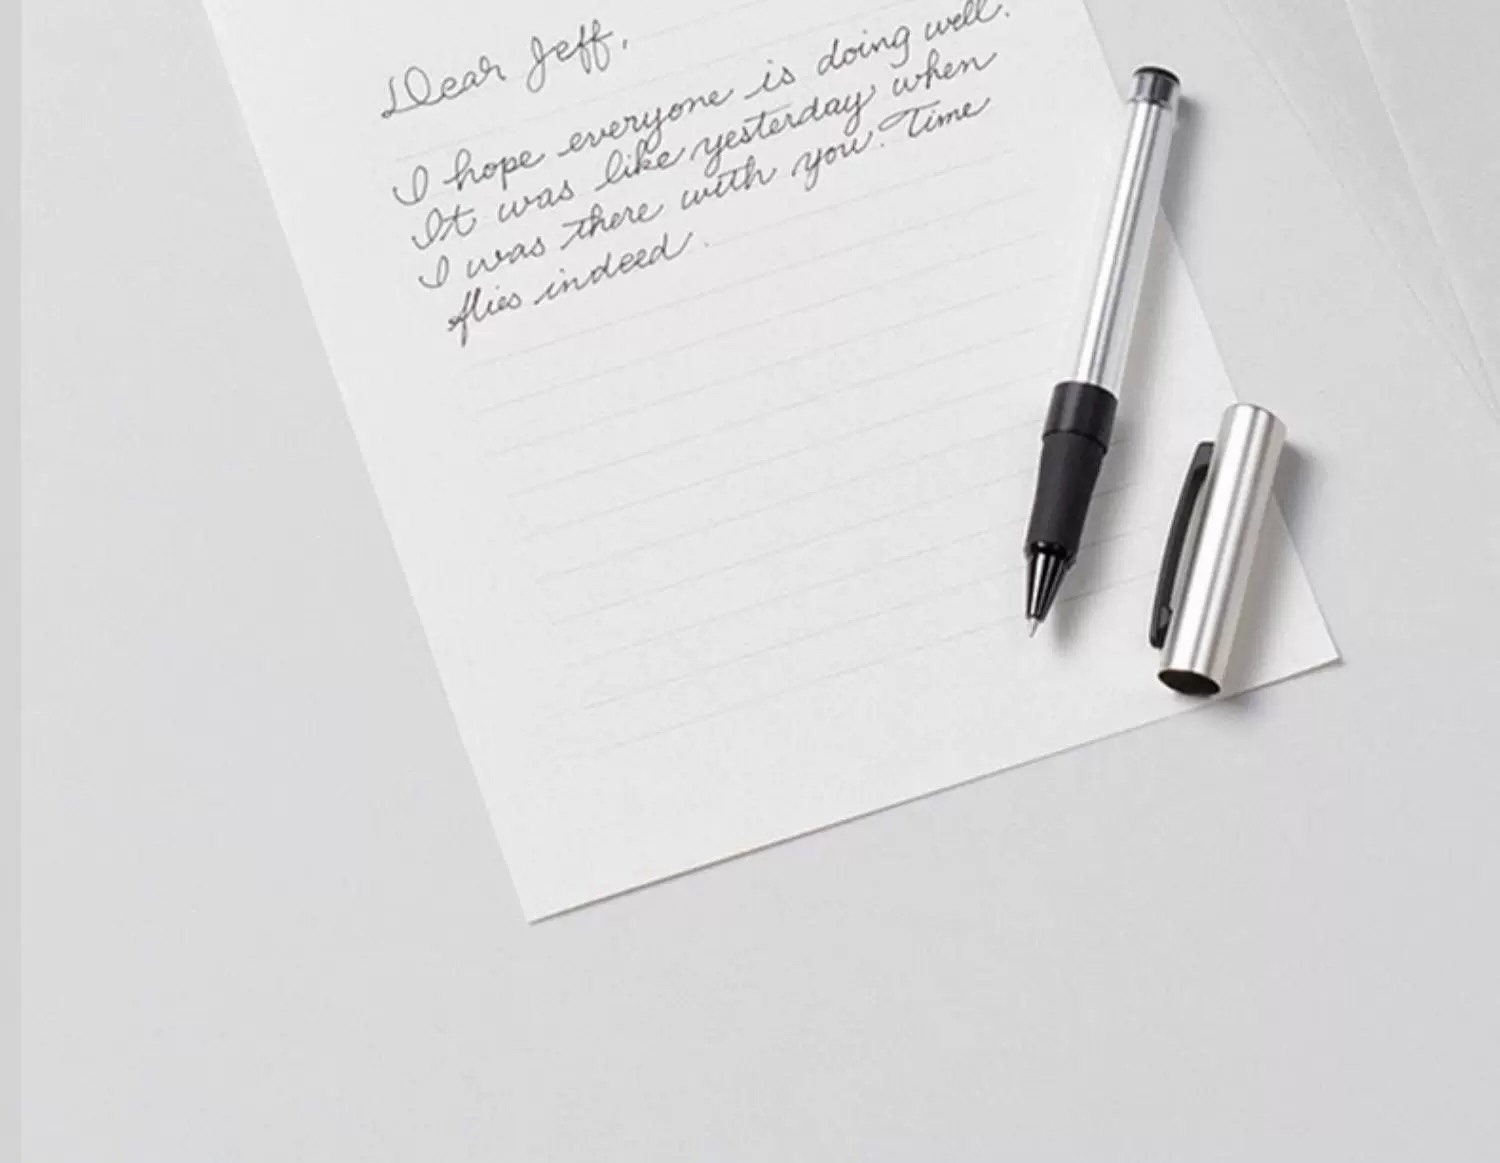 Dear Jeff,
I hope everyone is doing well.
It was like yesterday when
I was there with you. Time
flies indeed.